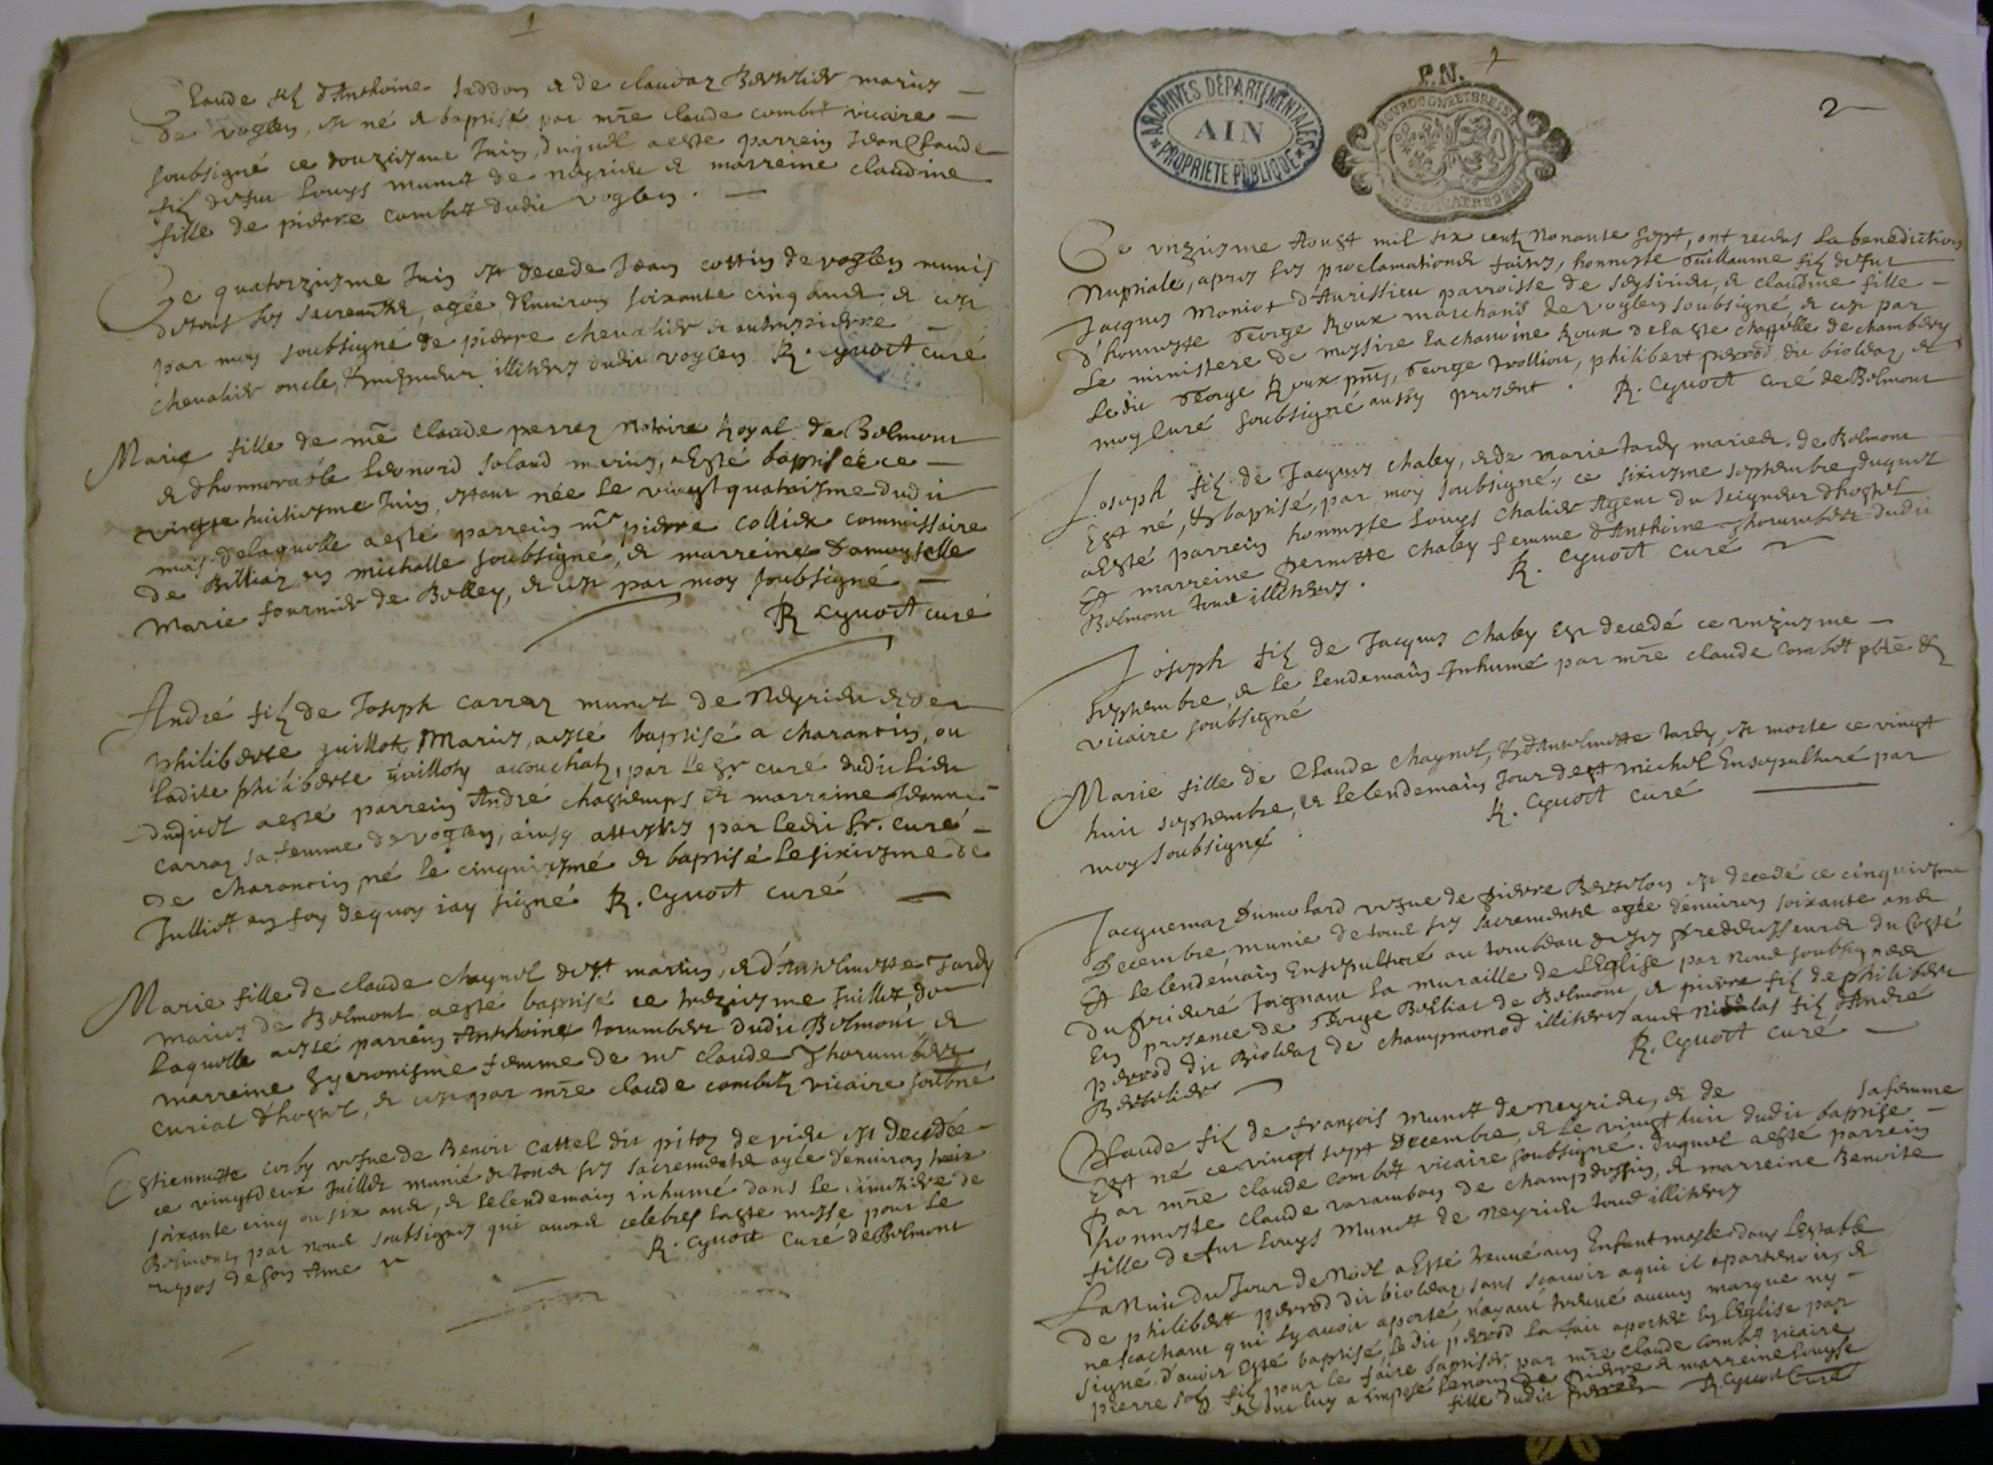 1
Claude filz d'Anthoine Jaddon & de claudaz Berthier mariez
de voglen, est né & baptisé par mre claude combet vicaire
soubsigné ce douziesme Juin, duquel a esté parrein Jean Claude
filz de fut Louys munet de neyrieu & marreine claudine
fille de pierre combet dudit voglen.
Ce quatorziesme Juin est decedé Jean cottin de voglen munis
de tous les sacrements, agée d'Environ soixante cinq ans & ce
par moy soubsigné de pierre chevalier &
chevalier oncle, illiterez dudit voglen R. Cynoct curé
Marie fille de me Claude perrez Notaire Royal de Belmont
& d'honnorable Leonord mariez, a Esté baptisée ce
vingte huitiesme Juin, estant née le vingt quatriesme dudit
mois, de laquelle a esté parrein mr pierre Collier commissaire
de Billiaz en michalle soubsigné, & marreine Damoyselle
Marie fournier de Belley, & ce par moy soubsigné
R Cynoct curé
André filz de Joseph Carraz munet de Neyrieu & de
philiberte guillot Mariez, a esté baptisé a charancin, ou
ladite philiberte guillot accouchat, par le Sr curé dudit lieu
duquel a esté parrein André chastemps & marreine Jeanne
Carraz sa femme de voglen, ainsy attestés par ledit Sr. Curé
de Charancin né le cinquiesme & baptisé le sixiesme de
Juillet en foy dequoy iay signé R. Cynoct curé
Marie fille de claude chaynel & d'Anthelmette Tardy
mariez de Belmont a esté baptisé ce treziesme Juillet de
laquelle a esté parrein Anthoine Thorumbert dudit Belmont &
marreine hyeronisme femme de mr claude Thorumbert
curial d'hostel, & ce par mre claude combet vicaire soubné
Estiennette corby vefue de Benoit Cattel dit pitoz de vieu est decedée
ce vingt deux Juillet munié de tous ses sacrements agée d'environ
soixante cinq ou six ans, & le lendemain inhumé dans le cimetiere de
Belmont par nous soubsignés qui auons celebrés la ste messe pour le
repos de son Ame R. Cynoct Curé de Belmont
ARCHIVES DÉPARTEMENTALES
AIN
PROPRIETE PUBLIQUE
P.N.
BOURGOGNE ET BRESSE
2
Ce unziesme Aoust mil six cent Nonante sept, ont receus la benediction
Nuptiale, apres les proclamations faites, honneste Guillaume filz de fut
Jacques Moniet d'Aurissieu parroisse de Seyssieu, & claudine fille
d'honneste George Roux marchand de voglen soubsigné, & ce par
le ministere de messire Roux de la Ste chapelle de chambery
ledit George Roux pnt, George trollion, philibert perrod dit biolaz &
moy Curé soubsigné aussy present. R. Cynoct curé de Belmont
Joseph filz de Jacques chaley, & de marie tardy mariés de Belmont
Est né, & baptisé, par moy soubsigné, ce sixiesme septembre, duquel
a Esté parrein honneste Louys chalier Agent du Seigneur d'hostel
Et marreine pernette chaley femme d'Anthoine Thorumbert dudit
Belmont tous illiterez. R. Cynoct Curé
Joseph filz de Jacques chaley Est decedé ce unziesme
septembre, & le lendemain Inhumé par mre claude Combet pbre &
vicaire soubsigné
Marie fille de Claude Chaynel, & d'Anthelmette tardy, est morte ce vingt
huit septembre, & le lendemain jour de st michel Ensepulturé par
moy soubsigné R. Cynoct Curé
Jacquemaz Dumolard vefue de pierre Berthelon est decedé ce cinquiesme
Decembre, munie de tous ses sacrements agée d'environ soixante ans
Et le lendemain Ensepulturé au tombeau de ses predecesseurs du Costé
du joignant la muraille de L'Eglise par nous soubsignés
En presence de George Belliat de Belmont, & pierre filz de philibert
perrod dit Biolaz de champmonod illiterez auec nicolas filz d'André
Berthelier R. Cynoct Curé
Claude filz de françois Munet de neyrieu, & de sa femme
Est né ce vingt sept Decembre, & le vingt huit dudit baptisé
par mre claude combet vicaire soubsigné. duquel a esté parrein
honneste claude varambon de champdossin, & marreine Benoite
fille de fut Louys Munet de neyrieu tous illiterez
La Nuit du Jour de Noël a Esté treuué un Enfant masle dans l'estable
de philibert perrod dit biolaz, sans scauoir a qui il apartenoit, &
ne scachant qui l'y auoit aporté, n'ayant treuué aucun marque ny
signe d'auoir Esté baptisé, ledit perrod l'a fait aporter En L'Eglise par
pierre son filz pour le faire baptiser, par mre Claude Combet vicaire
& on luy a imposé le nom de pierre & marreine Louyse
fille dudit perrod R. Cynoct Curé